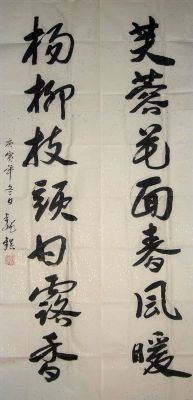 芙蓉花面春風暖
楊柳枝頭甘露香
庚寅年冬日